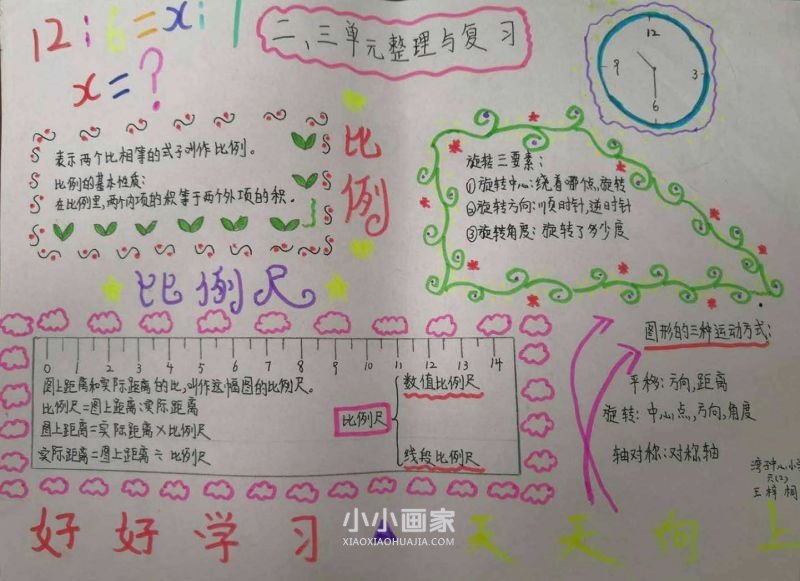 12:6=x:1
x=?
二、三单元整理与复习
12
9
3
6
表示两个比相等的式子叫作比例。
比例的基本性质:
在比例里,两个内项的积等于两个外项的积。
比例
旋转三要素:
①旋转中心:绕着哪点旋转
②旋转方向:顺时针,逆时针
③旋转角度:旋转了多少度
比例尺
0 1 2 3 4 5 6 7 8 9 10 11 12 13 14
图上距离和实际距离的比,叫作这幅图的比例尺。
比例尺=图上距离:实际距离
图上距离=实际距离×比例尺
实际距离=图上距离÷比例尺
比例尺
数值比例尺
线段比例尺
图形的三种运动方式:
平移:方向,距离
旋转:中心点,方向,角度
轴对称:对称轴
小学
王梓桐
好好学习 天天向上
小小画家
XIAOXIAOHUAJIA.COM